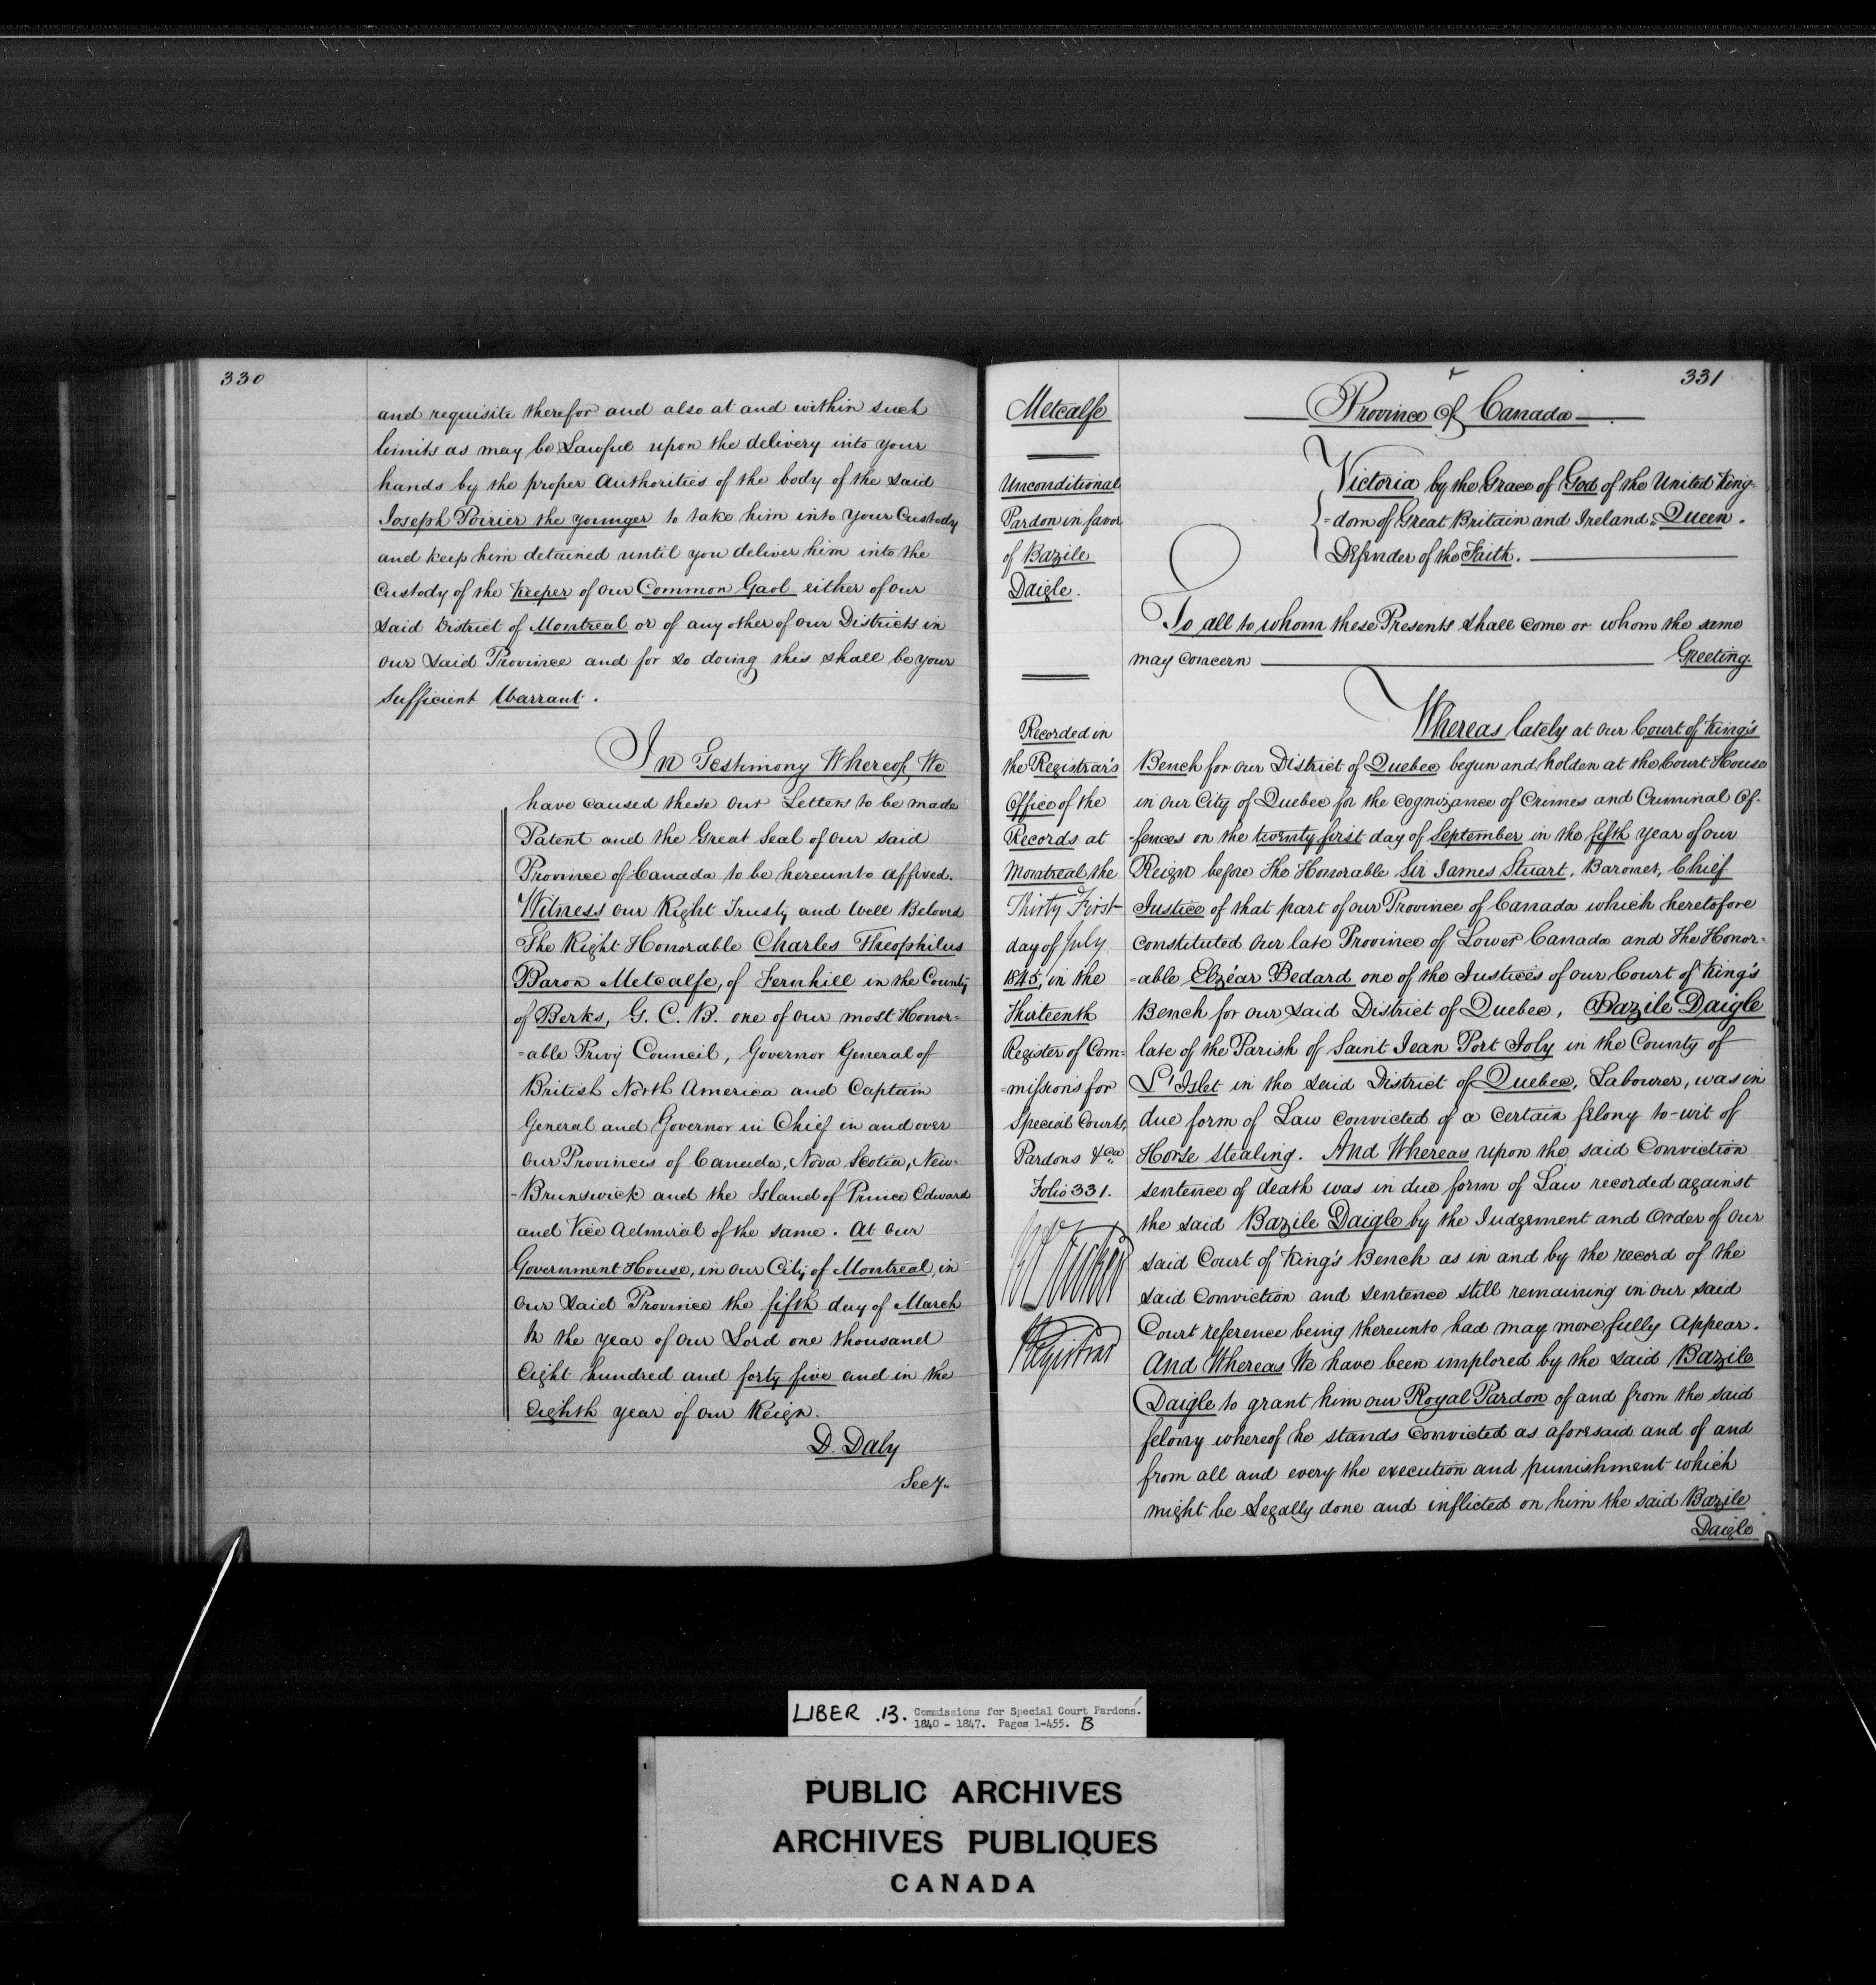 330
and requisite therefor and also at and within such
limits as may be Lawful upon the delivery into your
hands by the proper Authorities of the body of the said
Joseph Poirier the younger to take him into your Custody
and keep him detained until you deliver him into the
Custody of the Keeper of our Common Gaol either of our
said District of Montreal or of any other of our Districts in
our said Province and for so doing this shall be your
sufficient Warrant.
In Testimony Whereof We
have caused these Our Letters to be made
Patent and the Great Seal of our said
Province of Canada to be hereunto affixed.
Witness our Right Trusty and Well Beloved
The Right Honorable Charles Theophilus
Baron Metcalfe, of Fernhill in the County
of Berks, G. C. B. one of our most Honor=
=able Privy Council, Governor General of
British North America and Captain
General and Governor in Chief in and over
Our Provinces of Canada, Nova Scotia, New-
-Brunswick and the Island of Prince Edward
and Vice Admiral of the same. At our
Government House, in our City of Montreal, in
our said Province the fifth day of March
In the year of our Lord one thousand
Eight hundred and forty five and in the
Eighth year of our Reign.
D. Daly
Secy.
331
Metcalfe
Unconditional
Pardon in favor
of Bazile
Daigle.
Recorded in
the Registrar's
Office of the
Records at
Montreal the
Thirty First
day of July
1845, in the
Thirteenth
Register of Com=
=missions for
Special Courts,
Pardons &ca
Folio 331.
Registrar
Province of Canada
Victoria by the Grace of God of the United King-
=dom of Great Britain and Ireland, Queen.
Defender of the Faith.
To all to whom these Presents shall come or whom the same
may concern Greeting.
Whereas lately at our Court of King's
Bench for our District of Quebec begun and holden at the Court House
in our City of Quebec for the cognizance of Crimes and Criminal Of-
-fences on the twenty first day of September in the fifth year of our
Reign before The Honorable Sir James Stuart, Baronet, Chief
Justice of that part of our Province of Canada which heretofore
constituted our late Province of Lower Canada and The Honor=
=able Elzéar Bedard one of the Justices of our Court of King's
Bench for our said District of Quebec, Bazile Daigle
late of the Parish of Saint Jean Port Joly in the County of
L'Islet in the said District of Quebec, Labourer, was in
due form of Law convicted of a certain felony to-wit of
Horse stealing. And Whereas upon the said Conviction
sentence of death was in due form of Law recorded against
the said Bazile Daigle by the Judgement and Order of our
said Court of King's Bench as in and by the record of the
said Conviction and sentence still remaining in our said
Court reference being thereunto had may more fully Appear.
And Whereas We have been implored by the said Bazile
Daigle to grant him our Royal Pardon of and from the said
felony whereof he stands Convicted as aforesaid and of and
from all and every the execution and punishment which
might be Legally done and inflicted on him the said Bazile
Daigle
LIBER .13. Commissions for Special Court Pardons.
1840 - 1847. Pages 1-455. B
PUBLIC ARCHIVES
ARCHIVES PUBLIQUES
CANADA